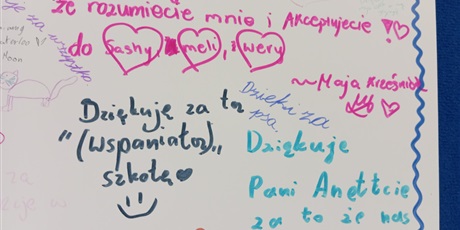 że rozumiecie mnie i Akceptujecie!
do Sashy, meli, i wery
~Maja
za wszystko
Dziękuję za tą
"(wspaniator),,
szkołę
Dzięki za
psa.
Dziękuje
Pani Anettcie
za to że nas